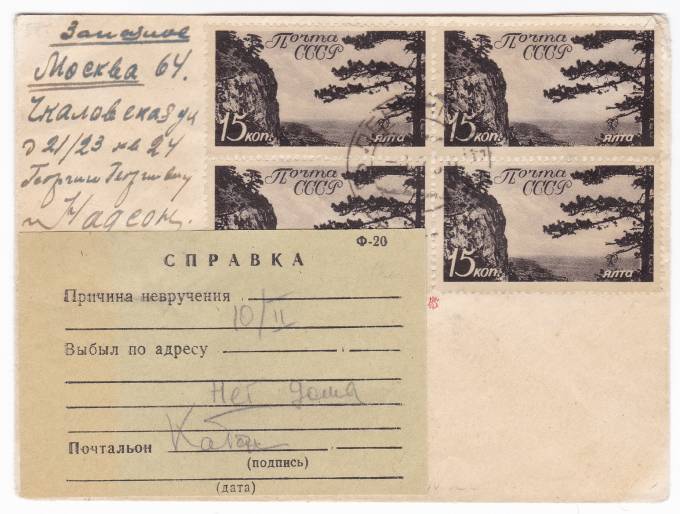 Заказное
Москва 64.
Чкаловская ул
д 21/23 кв 24
Георгию Георгиевичу
Надсон
Почта
СССР
15 коп.
Ялта
Почта
СССР
15 коп.
Ялта
Почта
СССР
Почта
СССР
15 коп.
Ялта
Ф-20
СПРАВКА
Причина невручения
10/II
Выбыл по адресу
Нет дома
Почтальон
(подпись)
(дата)